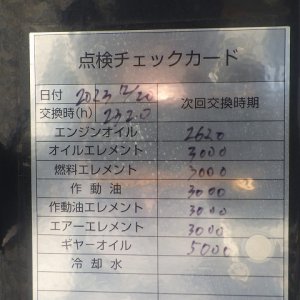 点検チェックカード
日付 2023 12/20
交換時(h) 2320 次回交換時期
エンジンオイル 2620
オイルエレメント 3000
燃料エレメント 3000
作動油 3000
作動油エレメント 3000
エアーエレメント 3000
ギヤーオイル 5000
冷却水